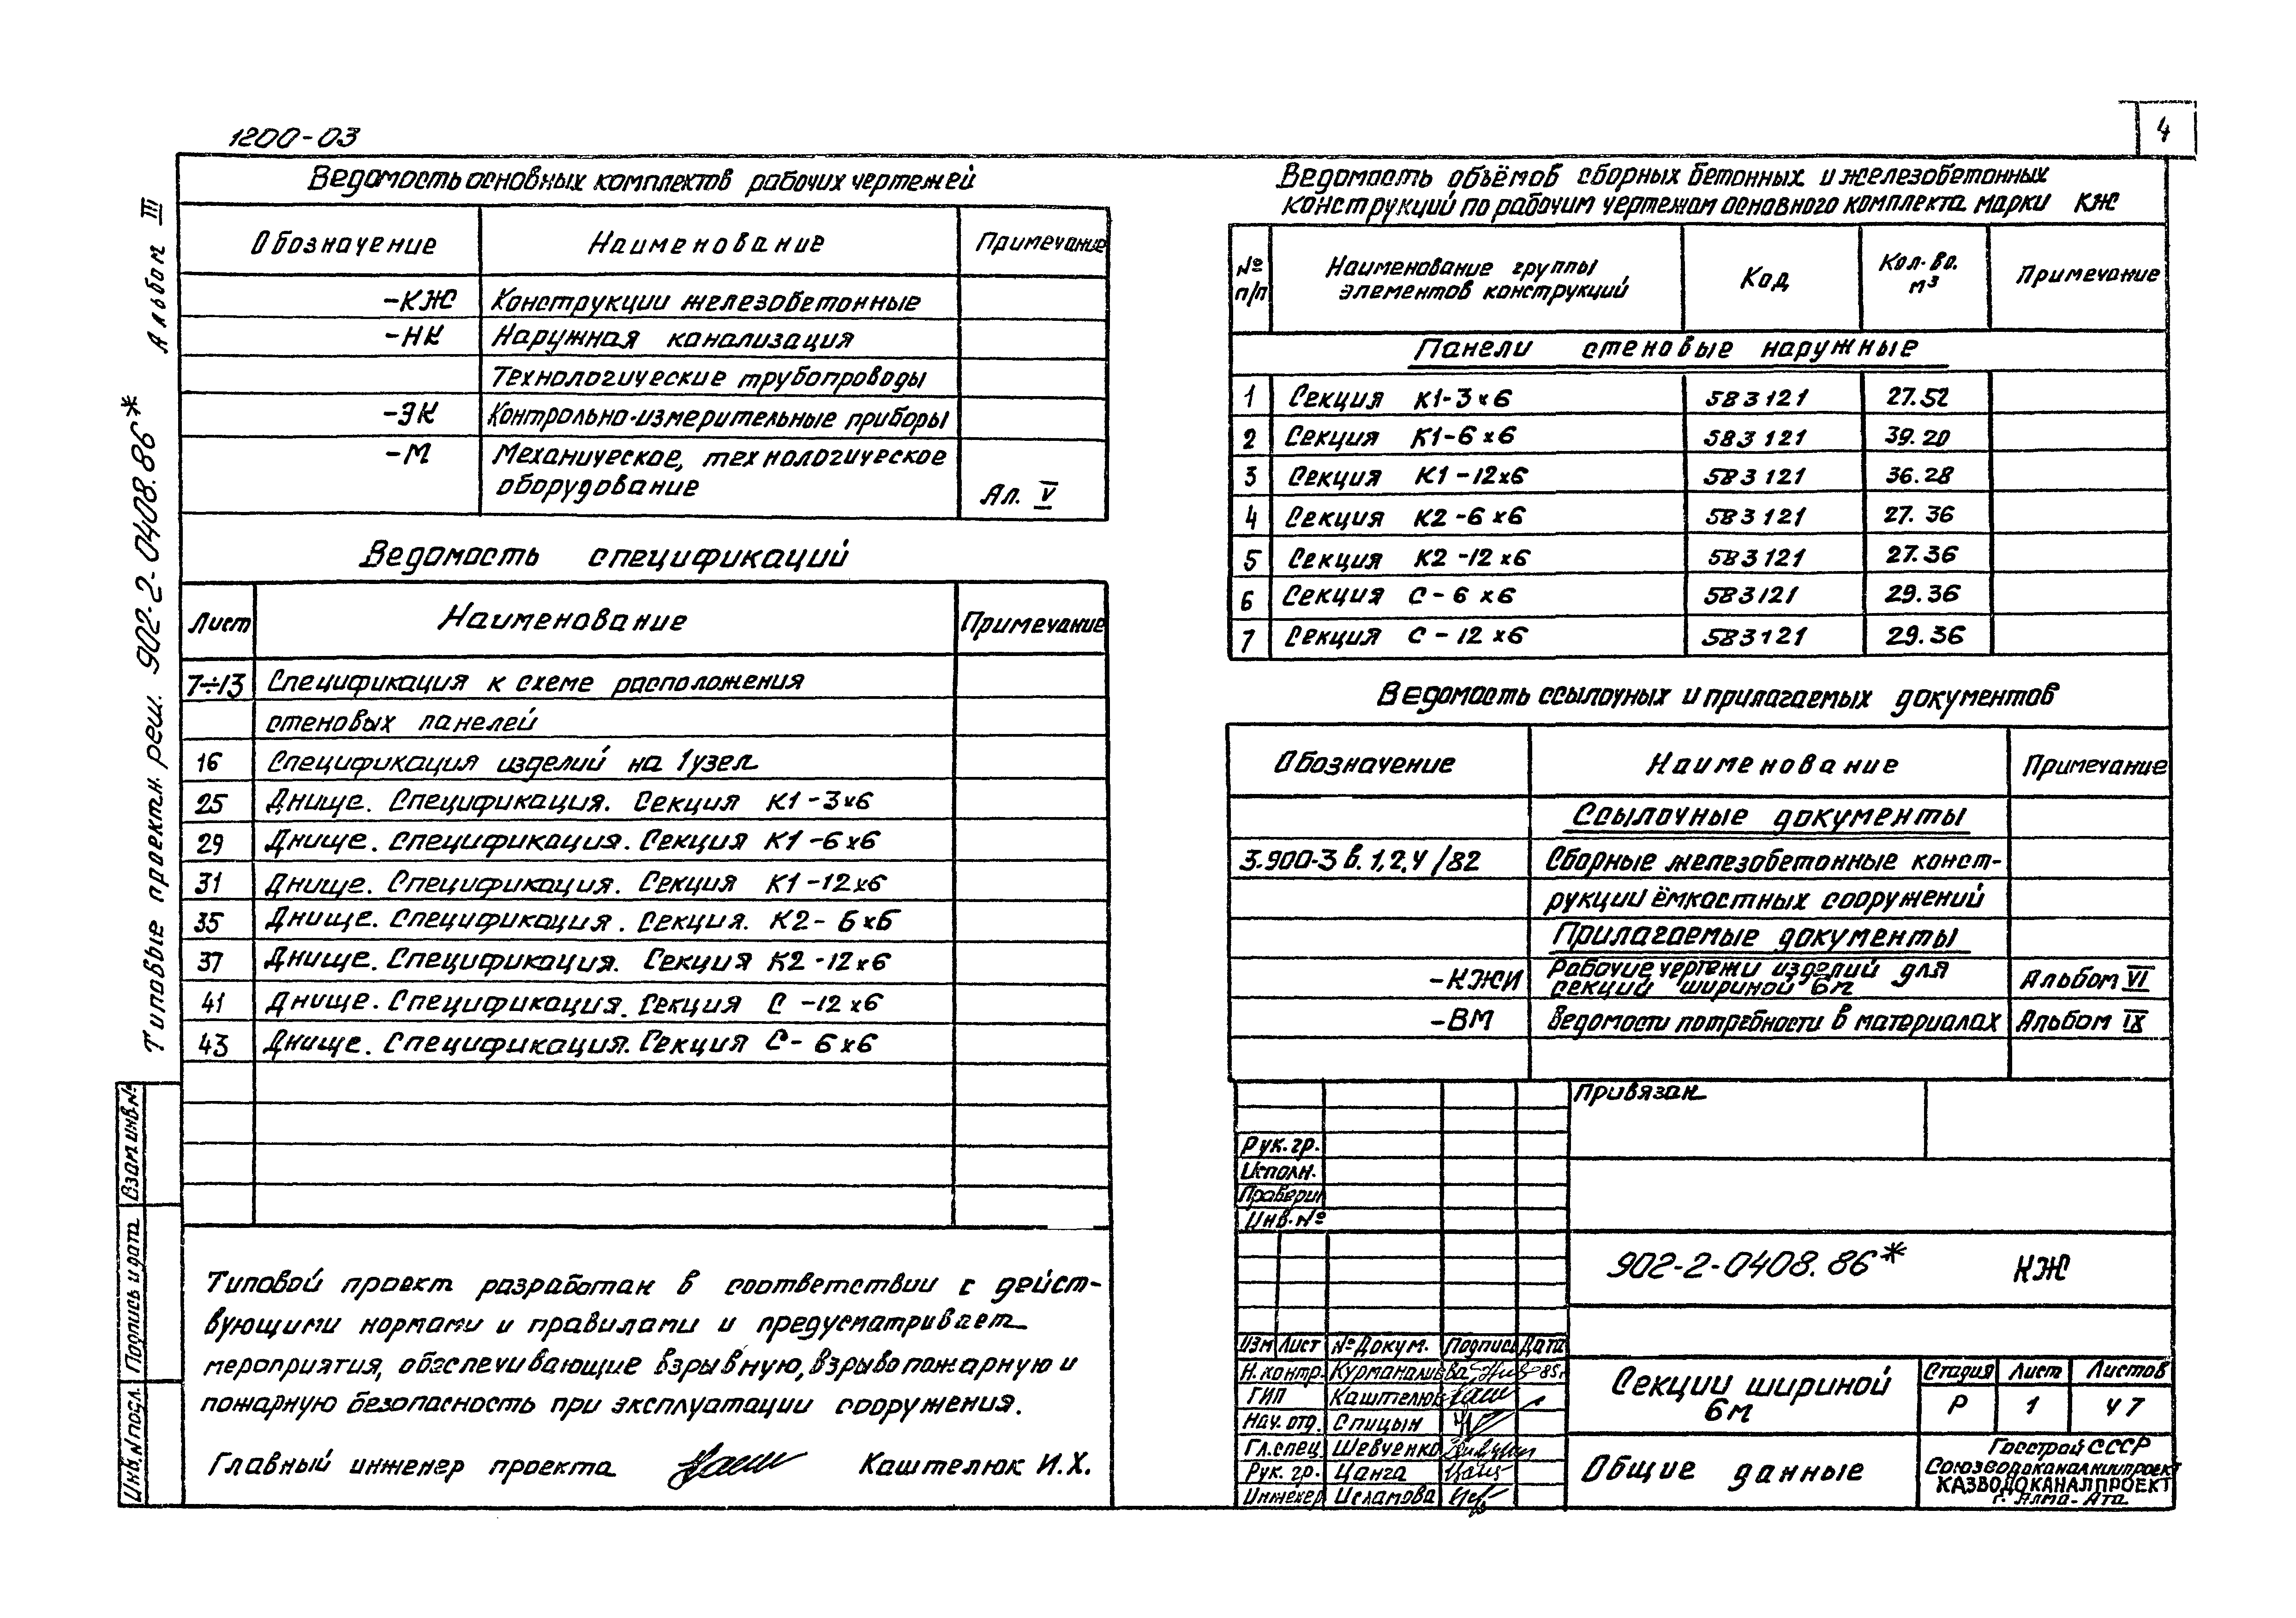 1200-03
4
Альбом III
Типовые проектн. реш. 902-2-0408.86*
Взам инв.№
Подпись и дата
Инв.№ подл.
Ведомость основных комплектов рабочих чертежей
Обозначение Наименование Примечание
-КЖ Конструкции железобетонные
-НК Наружная канализация
Технологические трубопроводы
-ЭК Контрольно-измерительные приборы
-М Механическое, технологическое
оборудование Ал. V
Ведомость спецификаций
Лист Наименование Примечание
7÷13 Спецификация к схеме расположения
стеновых панелей
16 Спецификация изделий на 1 узел
25 Днище. Спецификация. Секция К1-3х6
29 Днище. Спецификация. Секция К1-6х6
31 Днище. Спецификация. Секция К1-12х6
35 Днище. Спецификация. Секция. К2-6х6
37 Днище. Спецификация. Секция К2-12х6
41 Днище. Спецификация. Секция С-12х6
43 Днище. Спецификация. Секция С-6х6
Типовой проект разработан в соответствии с дейст-
вующими нормами и правилами и предусматривает
мероприятия, обеспечивающие взрывную, взрывопожарную и
пожарную безопасность при эксплуатации сооружения.
Главный инженер проекта Каштелюк И.Х.
Ведомость объёмов сборных бетонных и железобетонных
конструкций по рабочим чертежам основного комплекта марки КЖ
№ п/п Наименование группы элементов конструкций Код Кол-во. м³ Примечание
Панели стеновые наружные
1 Секция К1-3х6 583121 27.52
2 Секция К1-6х6 583121 39.20
3 Секция К1-12х6 583121 36.28
4 Секция К2-6х6 583121 27.36
5 Секция К2-12х6 583121 27.36
6 Секция С-6х6 583121 29.36
7 Секция С-12х6 583121 29.36
Ведомость ссылочных и прилагаемых документов
Обозначение Наименование Примечание
Ссылочные документы
3.900-3 в.1,2,4/82 Сборные железобетонные конст-
рукции ёмкостных сооружений
Прилагаемые документы
-КЖИ Рабочие чертежи изделий для
секций шириной 6м Альбом VI
-ВМ Ведомости потребности в материалах Альбом IX
Привязан
Рук. гр.
Исполн.
Проверил
Инв.№
902-2-0408.86* КЖ
Изм Лист № Докум. Подпись Дата
Н. контр. Курманалиева 85г
ГИП Каштелюк
Нач. отд. Спицын
Гл. спец. Шевченко
Рук. гр. Цанга
Инженер Исламова
Секции шириной
6м
Общие данные
Стадия Лист Листов
Р 1 47
Госстрой СССР
Союзводоканалниипроект
КАЗВОДОКАНАЛПРОЕКТ
г. Алма-Ата